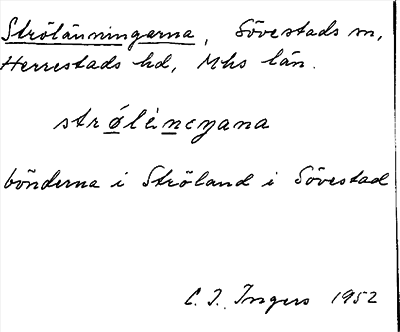 Strölänningarna, Sövestads sn,
Herrestads hd, Mhs län.
strǿlèneŋana
bönderna i Ströland i Sövestad
C. I. Ingers 1952